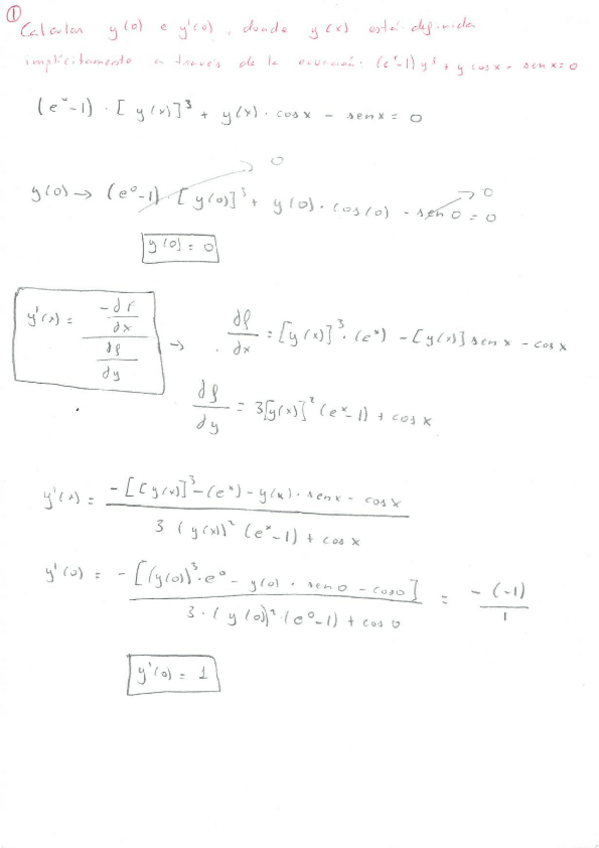 ①
Calcular y(0) e y'(0), donde y(x) está definida
implícitamente a través de la ecuación: (eˣ-1)y³ + y cosx - senx = 0
(eˣ-1) · [y(x)]³ + y(x) · cosx - senx = 0
0
y(0) → (e⁰-1) · [y(0)]³ + y(0) · cos(0) - sen 0 = 0
0
y(0) = 0
y'(x) = -df/dx / df/dy → df/dx = [y(x)]³ · (eˣ) - [y(x)] senx - cosx
df/dy = 3[y(x)]² (eˣ-1) + cosx
y'(x) = -[[y(x)]³-(eˣ) - y(x) · senx - cosx / 3 (y(x))² (eˣ-1) + cosx
y'(0) = -[(y(0))³ · e⁰ - y(0) · sen0 - cos0] / 3 · (y(0))² · (e⁰-1) + cos0 = -(-1) / 1
y'(0) = 1